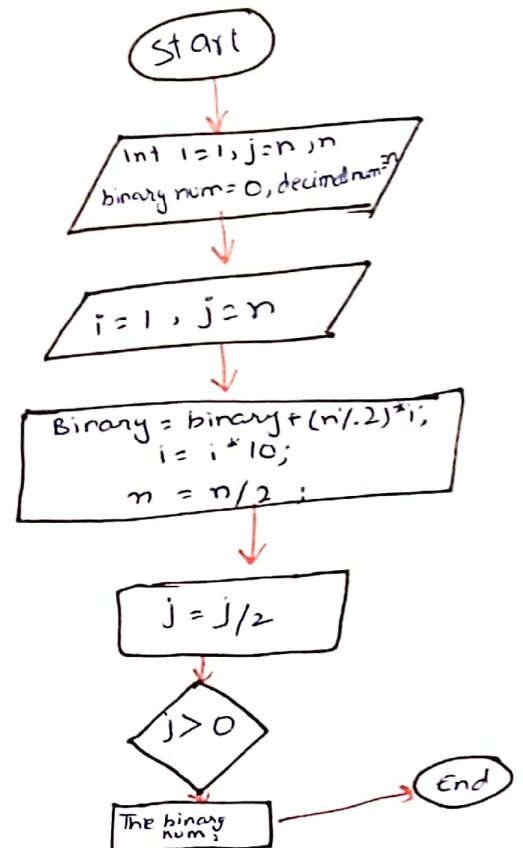 Start
Int i=1, j=n, n
binary num=0, decimal num=n
i=1, j=n
Binary = binary+(n%2)*i;
i = i*10;
n = n/2 ;
j=j/2
j>0
The binary
num:
End